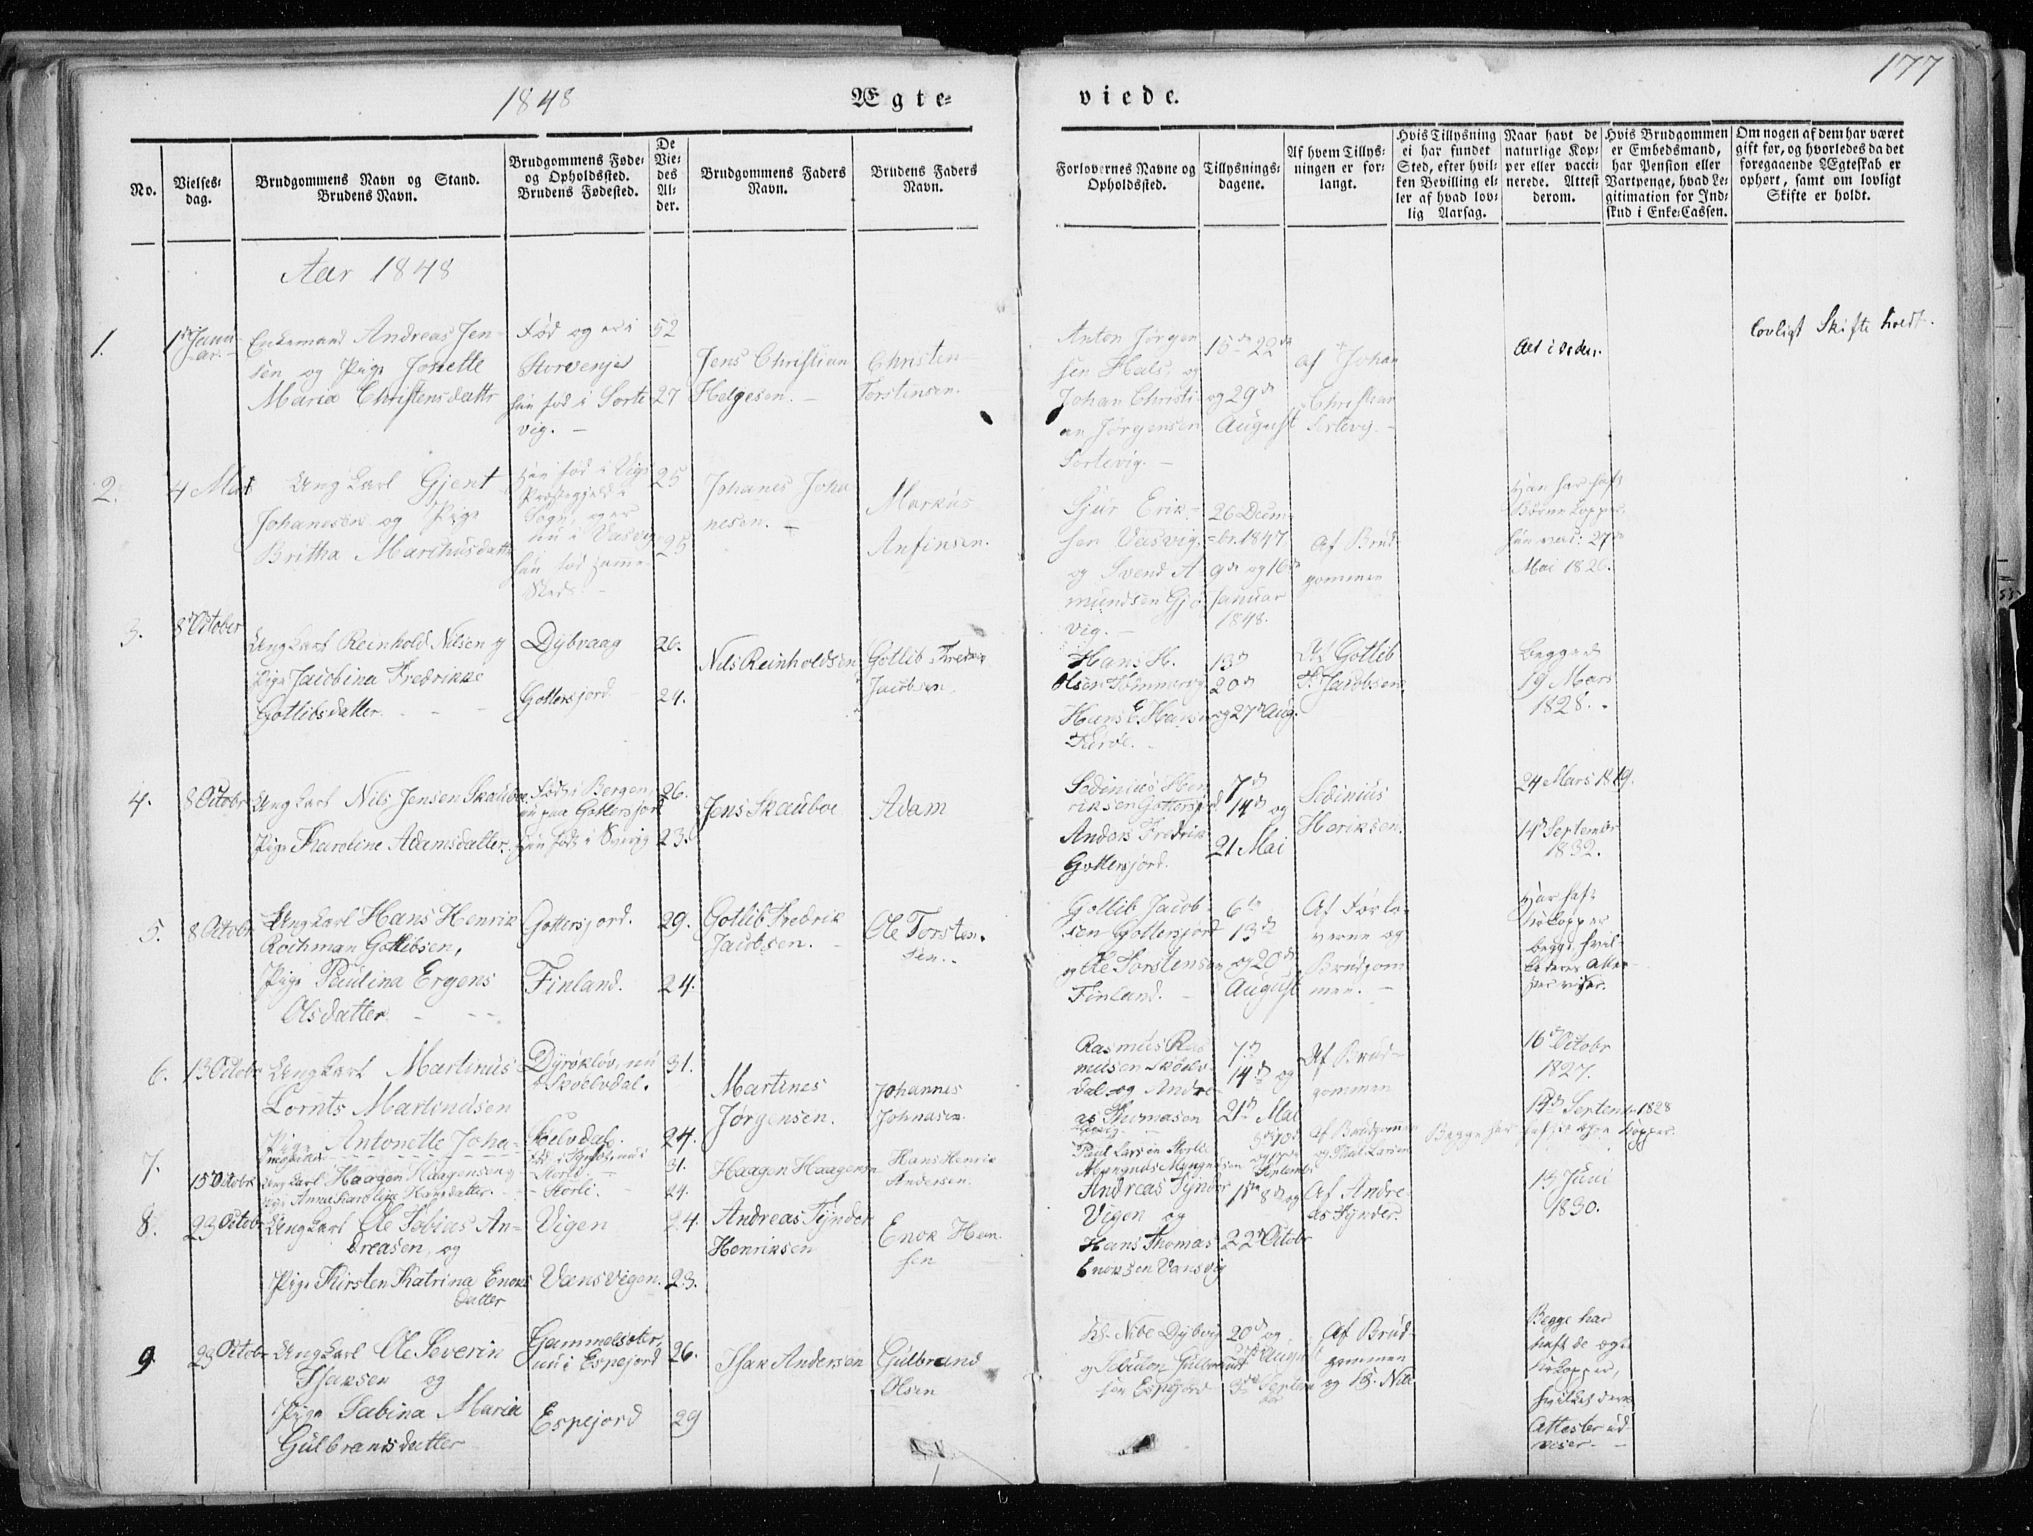 177
1848 Ægte-
viede.
No.
Vielses-
dag.
Brudgommens Navn og Stand.
Brudens Navn.
Brudgommens Føde-
og Opholdssted.
Brudens Fødested.
De
Vie-
des
Al-
der.
Brudgommens Faders
Navn.
Brudens Faders
Navn.
Forlovernes Navne og
Opholdssted.
Tillysnings-
dagene.
Af hvem Tillys-
ningen er for-
langt.
Hvis Tillysning
ei har fundet
Sted, efter hvil-
ken Bevilling el-
ler af hvad lov-
lig Aarsag.
Naar havt de
naturlige Kop-
per eller vacci-
nerede. Attest
derom.
Hvis Brudgommen
er Embedsmand,
har Pension eller
Vartpenge, hvad Le-
gitimation for Ind-
skud i Enke-Cassen.
Om nogen af dem har været
gift før, og hvorledes da det
foregaaende Ægteskab er
ophørt, samt om lovligt
Skifte er holdt.
Aar 1848
1.
1ste Janu-
ar.
Enkemand Andreas Jen-
sen og Pige Jonette
Maria Christensdattr
Fød og er i
Storvenje
hun fød i Sorte
vig. -
52
27
Jens Christian
Helgesen. -
Christen
Torstensen.
Anton Jørgen
sen Hals, og
Johan Christi-
an Jørgensen
Sortevig. -
15de 22de
og 29de
August
af Johan
Christian
Sortevig. -
Alt i Orden.
lovligt Skifte holdt.
2.
4 Mai
Ung Karl Gjert
Johanesen og Pige
Britha Marchusdattr
Han fød i Vigs
Præstegjeld
Sogn, og er
nu i Vasvig
hun fød samme
Sted. -
25
25
Johanes Joha
nesen. -
Markus
Anfinsen.
Sjur Erik-
sen Vasvig.
og Svend A-
mundsen
vig. -
26 Decem-
br. 1847
9de og 16de
Januar
1848.
Af Brud-
gommen
Han har haft
Børnekopper
hun vac: 27de
Mai 1826.
3.
8d October
Ung Karl Reinhold Nilsen og
Pige Jacobina Fredrikke
Gotlibsdatter. - -
Dybvaag
Gottersjord.
26.
24.
Nils Reinholdsen
Gotlib Fredrik
Jacobsen.
Hans H.
Olsen
Hans E. Hansen
13d
20de
og 27de Aug.
Af Gotlib
F. Jacobsen
Begge d
19 Mars
1828. -
4.
8 Octobr
Ung Karl Nils Jensen Skauboe.
Pige Karoline Adamsdatter.
Fød i Bergen
nu paa Gottersjord
hun fød i Sverig
26.
23.
Jens Skauboe
Adam
Sedinius Hen
riksen Gottersjord
Anders Fredrik
Gottersjord.
7d
14d og
21 Mai
Sedinius
Henriksen.
24 Mars 1819.
14d Septembr
1832.
5.
8 Octobr
Ung Karl Hans Henrik
Rochman Gotlibsen,
Pige Paulina Ergens
Olsdatter. - -
Gottersjord.
Finland.
29.
24.
Gotlib Fredrik
Jacobsen. -
Ole Torsten-
sen. -
Gotlib Jacob-
sen Gottersjord
og Ole Torstensen
Finland. -
6te
13de
og 20de
August
Af Forlo-
verne og
Brudgom
men. -
Har haft
Kokopper
begge, hvil-
ke deres Atte-
ster viser.
6.
13 Octobr
Ung Karl Martinus
Lornts Martinussen
Pige Antonette Joha-
Dyrøkløv, nu
i Skoelvdal.
Skoelvdal.
31.
24.
Martines
Jørgensen.
Johannes
Johnasen.
Rasmus Ras
musen Skoelv-
dal og Andre-
as Thomasen
7d
14de og
21d Mai
Af Brud-
gommen
16d Octobr
1827.
14d Septem. 1828
7.
15 Octobr
Ung Karl Haagen Haagensen og
Pige Anna Karoline Hansdatter.
Storli.
31.
24.
Haagen Haagensen
Hans Henrik
Andersen.
Paul Larsen Storli
Magnus Magnussen
Af Brudgommen
og Paul Larsen
Begge har haft de egne Kopper.
8.
23 Octobr
Ung Karl Ole Tobias An-
dreasen, og
Pige Kirsten Katrina Enoks
datter
Vigen
Vansvigen.
24.
23.
Andreas Tynder
Henriksen
Enok Han-
sen
Andreas Tynder
Vigen og
Hans Thomas
Enoksen Vansvig
1ste 8de og
22d Octobr
Af Andre-
as Tynder.
13 Juni
1830.
9
23 Octobr
Ung Karl Ole Severin
Isaksen og
Pige Sabina Maria
Gulbrandsdatter
Gammelsæter,
nu i Espejord
Espejord
26.
29
Isak Andersen
Gulbrand
Olsen
Nibe Dybvig
og Gulbrand
sen Espejord
20de og
27de August
3de Septem
ber
Af Brud-
gommen
og Nibe
Begge har
haft de egne
Kokopper,
hvilket deres
Attester ud
viser. -